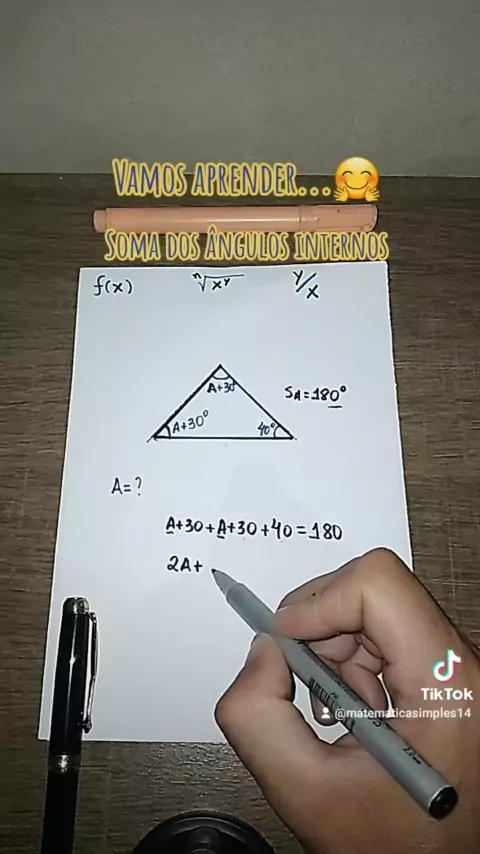 VAMOS APRENDER...🤗
SOMA DOS ÂNGULOS INTERNOS
f(x) ⁿ√xʸ y/x
A+30
SA=180°
A+30° 40°
A=?
A+30+A+30+40=180
2A+
TikTok
@matematicasimples14